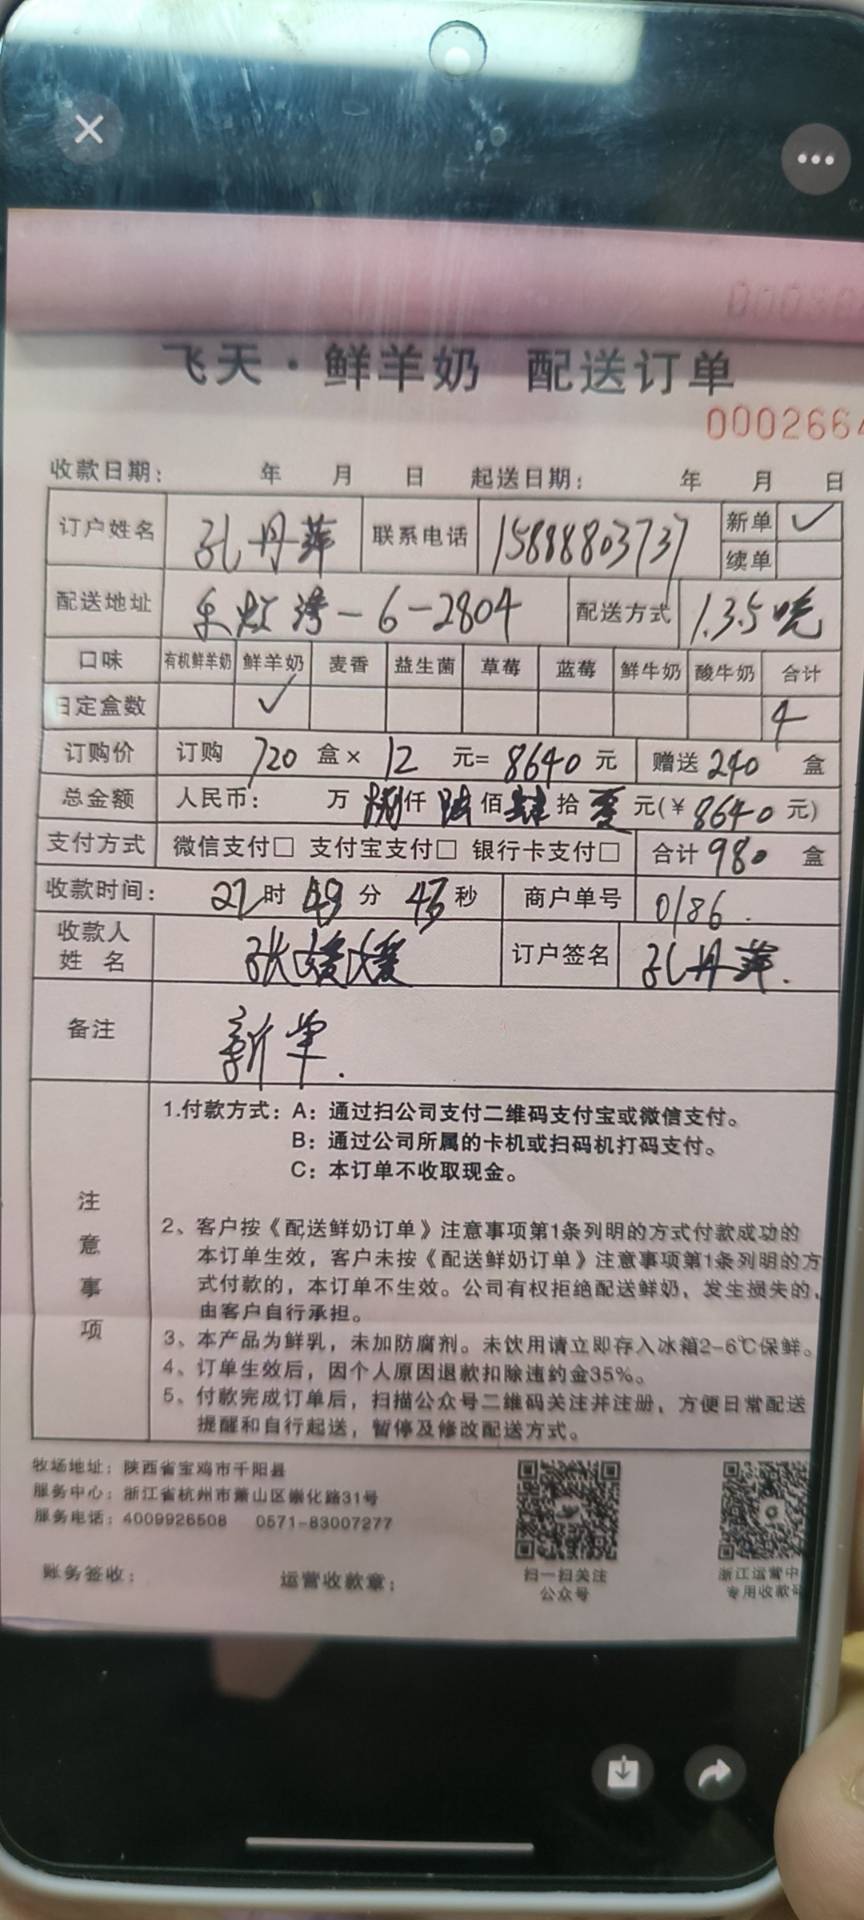 飞天·鲜羊奶 配送订单
000266
收款日期: 年 月 日 起送日期: 年 月 日
订户姓名 孔丹萍 联系电话 15888803737 新单 ✓
续单
配送地址 乐虹湾-6-2804 配送方式 1.3.5晚
口味 有机鲜羊奶 鲜羊奶 麦香 益生菌 草莓 蓝莓 鲜牛奶 酸牛奶 合计
日定盒数 ✓ 4
订购价 订购 720 盒× 12 元= 8640 元 赠送 240 盒
总金额 人民币: 万 捌 仟 陆 佰 肆 拾 零 元(¥ 8640 元)
支付方式 微信支付□ 支付宝支付□ 银行卡支付□ 合计 980 盒
收款时间: 22 时 49 分 43 秒 商户单号 0186.
收款人姓名 张媛媛 订户签名 孔丹萍.
备注 新单.
注意事项
1.付款方式: A: 通过扫公司支付二维码支付宝或微信支付。
B: 通过公司所属的卡机或扫码机打码支付。
C: 本订单不收取现金。
2、客户按《配送鲜奶订单》注意事项第1条列明的方式付款成功的
本订单生效，客户未按《配送鲜奶订单》注意事项第1条列明的方
式付款的，本订单不生效。公司有权拒绝配送鲜奶，发生损失的，
由客户自行承担。
3、本产品为鲜乳，未加防腐剂。未饮用请立即存入冰箱2-6℃保鲜。
4、订单生效后，因个人原因退款扣除违约金35%。
5、付款完成订单后，扫描公众号二维码关注并注册，方便日常配送
提醒和自行起送，暂停及修改配送方式。
牧场地址: 陕西省宝鸡市千阳县
服务中心: 浙江省杭州市萧山区崇化路31号
服务电话: 4009926508 0571-83007277
账务签收: 运营收款章:
扫一扫关注
公众号
浙江运营中
专用收款码